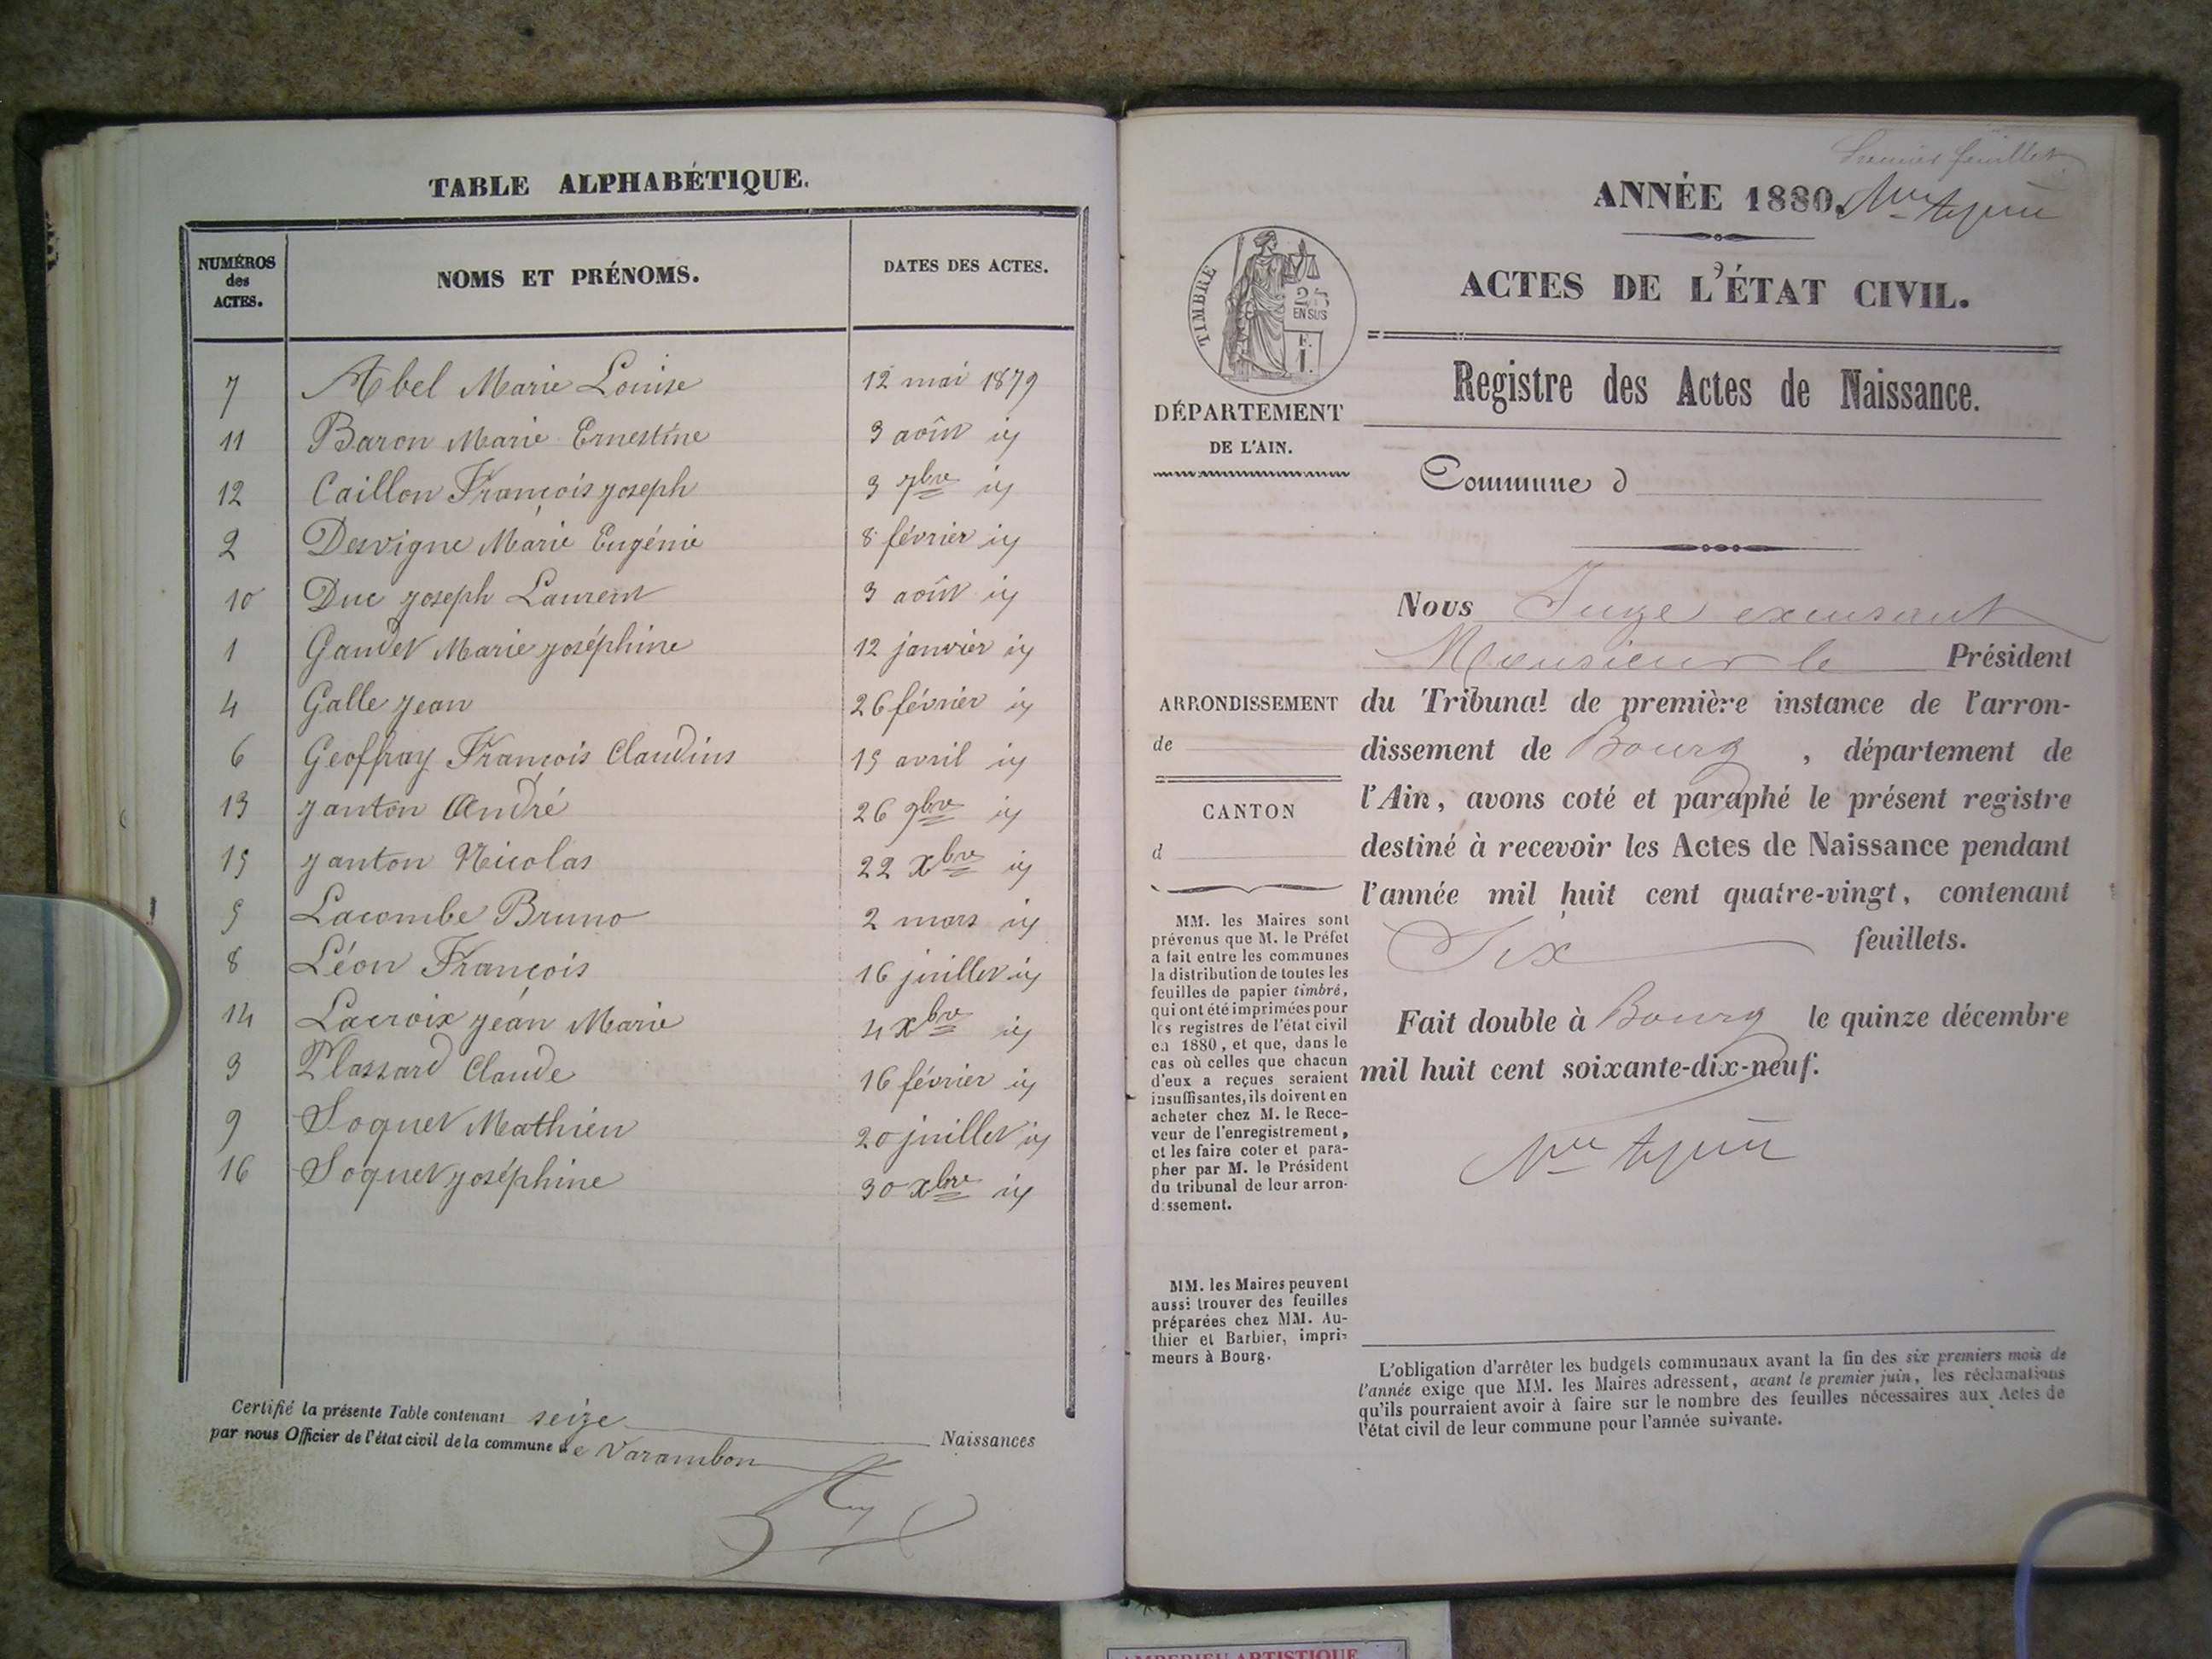 TABLE ALPHABÉTIQUE.
NUMÉROS des ACTES.
NOMS ET PRÉNOMS.
DATES DES ACTES.
7 Abel Marie Louise 12 mai 1879
11 Baron Marie Ernestine 3 août id
12 Caillon François joseph 3 7bre id
2 Desvigne Marie Eugénie 8 février id
10 Duc joseph Laurent 3 août id
1 Gaudet Marie joséphine 12 janvier id
4 Galle jean 26 février id
6 Geoffray François Claudius 15 avril id
13 janton André 26 9bre id
15 janton Nicolas 22 Xbre id
5 Lacombe Bruno 2 mars id
8 Léon François 16 juillet id
14 Lacroix jean Marie 4 Xbre id
3 Plassard Claude 16 février id
9 Soquet Mathieu 20 juillet id
16 Soquet joséphine 30 Xbre id
Certifié la présente Table contenant seize Naissances
par nous Officier de l'état civil de la commune de Varambon
Premier feuillet
ANNÉE 1880.
ACTES DE L'ÉTAT CIVIL.
Registre des Actes de Naissance.
TIMBRE
25
EN SUS
F.
1.
DÉPARTEMENT
DE L'AIN.
Commune d
Nous Juge excusant
Monsieur le Président
du Tribunal de première instance de l'arron-
dissement de Bourg, département de
l'Ain, avons coté et paraphé le présent registre
destiné à recevoir les Actes de Naissance pendant
l'année mil huit cent quatre-vingt, contenant
Six feuillets.
Fait double à Bourg le quinze décembre
mil huit cent soixante-dix-neuf.
ARRONDISSEMENT
de
CANTON
d
MM. les Maires sont
prévenus que M. le Préfet
a fait entre les communes
la distribution de toutes les
feuilles de papier timbré,
qui ont été imprimées pour
les registres de l'état civil
en 1880, et que, dans le
cas où celles que chacun
d'eux a reçues seraient
insuffisantes, ils doivent en
acheter chez M. le Rece-
veur de l'enregistrement,
et les faire coter et para-
pher par M. le Président
du tribunal de leur arron-
dissement.
MM. les Maires peuvent
aussi trouver des feuilles
préparées chez MM. Au-
thier et Barbier, impri-
meurs à Bourg.
L'obligation d'arrêter les budgets communaux avant la fin des six premiers mois de
l'année exige que MM. les Maires adressent, avant le premier juin, les réclamations
qu'ils pourraient avoir à faire sur le nombre des feuilles nécessaires aux Actes de
l'état civil de leur commune pour l'année suivante.
AMBERIEU ARTISTIQUE